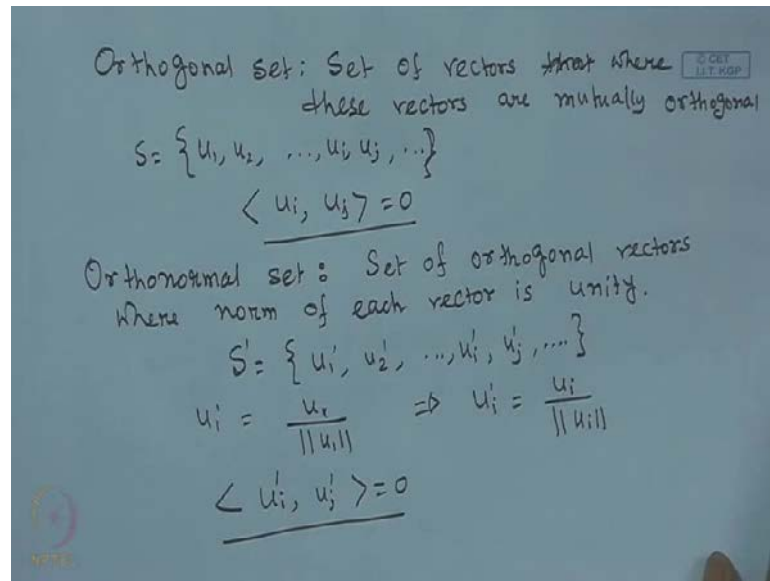 Orthogonal set: Set of vectors that where
© CET
I.I.T. KGP
these vectors are mutually orthogonal
S = {u₁, u₂, ..., uᵢ, uⱼ, ...}
< uᵢ, uⱼ > = 0
Orthonormal set : Set of orthogonal vectors
where norm of each vector is unity.
S' = { u₁', u₂', ..., uᵢ', uⱼ', .... }
u₁' = u₁ / ||u₁|| ⇒ uᵢ' = uᵢ / ||uᵢ||
< uᵢ', uⱼ' > = 0
NPTEL